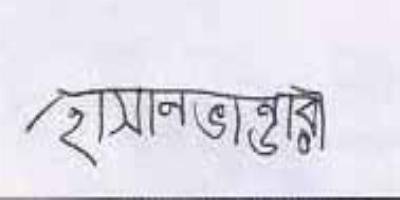 হাসানভান্ডারী